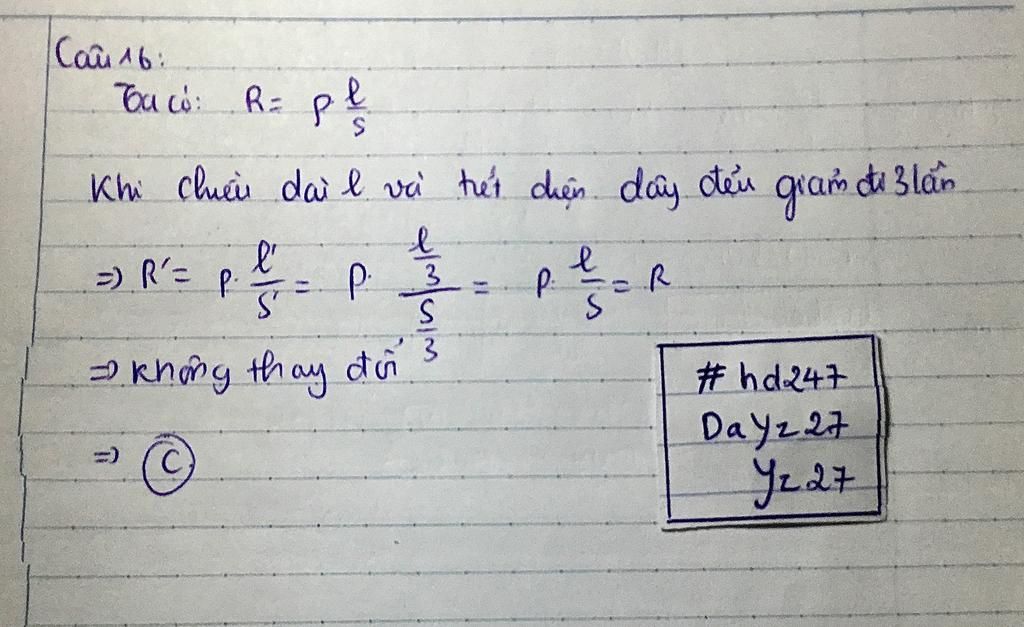 Câu 16:
Ta có: R = ρ l/s
Khi chiều dài l và tiết diện dây đều giảm đi 3 lần
=> R' = ρ. l'/S' = ρ. (l/3)/(S/3) = ρ. l/S = R
=> Không thay đổi
=> C
# hd247
DaYz27
Yz27